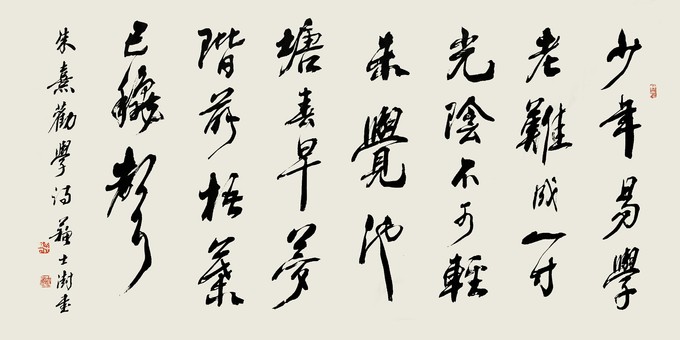 少年易學
老難成一寸
光陰不可輕
未覺池
塘春早夢
階前梧葉
已龝聲
朱熹勸學詩蘇士澍書